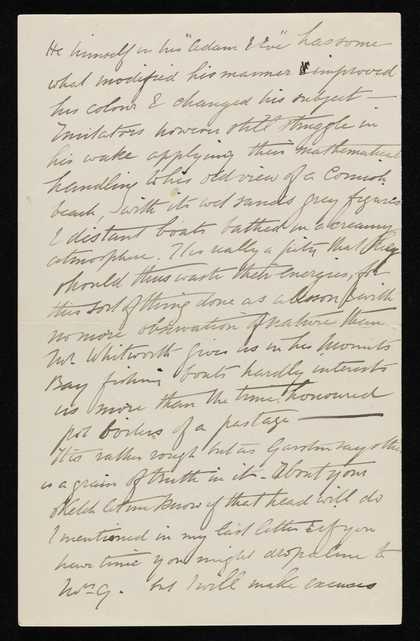 He himself in his "Adam & Eve" has some
what modified his manner & improved
his colour & changed his subject —
Imitators however still struggle in
his wake applying their mathematical
handling to his old view of a Cornish
beach, with its wet sands grey figures
& distant boats bathed in a creamy
atmosphere. It is really a pity that they
should thus waste their energies, for
this sort of thing done as a lesson & with
no more observation of nature than
Mr. Whitworth gives us in his Mounts
Bay fishing boats hardly interests
us more than the time honoured
pot boilers of a past age —
It is rather rough but as Gordon says there
is a grain of truth in it — About your
sketch let me know if that head will do
I mentioned in my last letter & if you
have time you might drop a line to
Mrs G. but I will make excuses